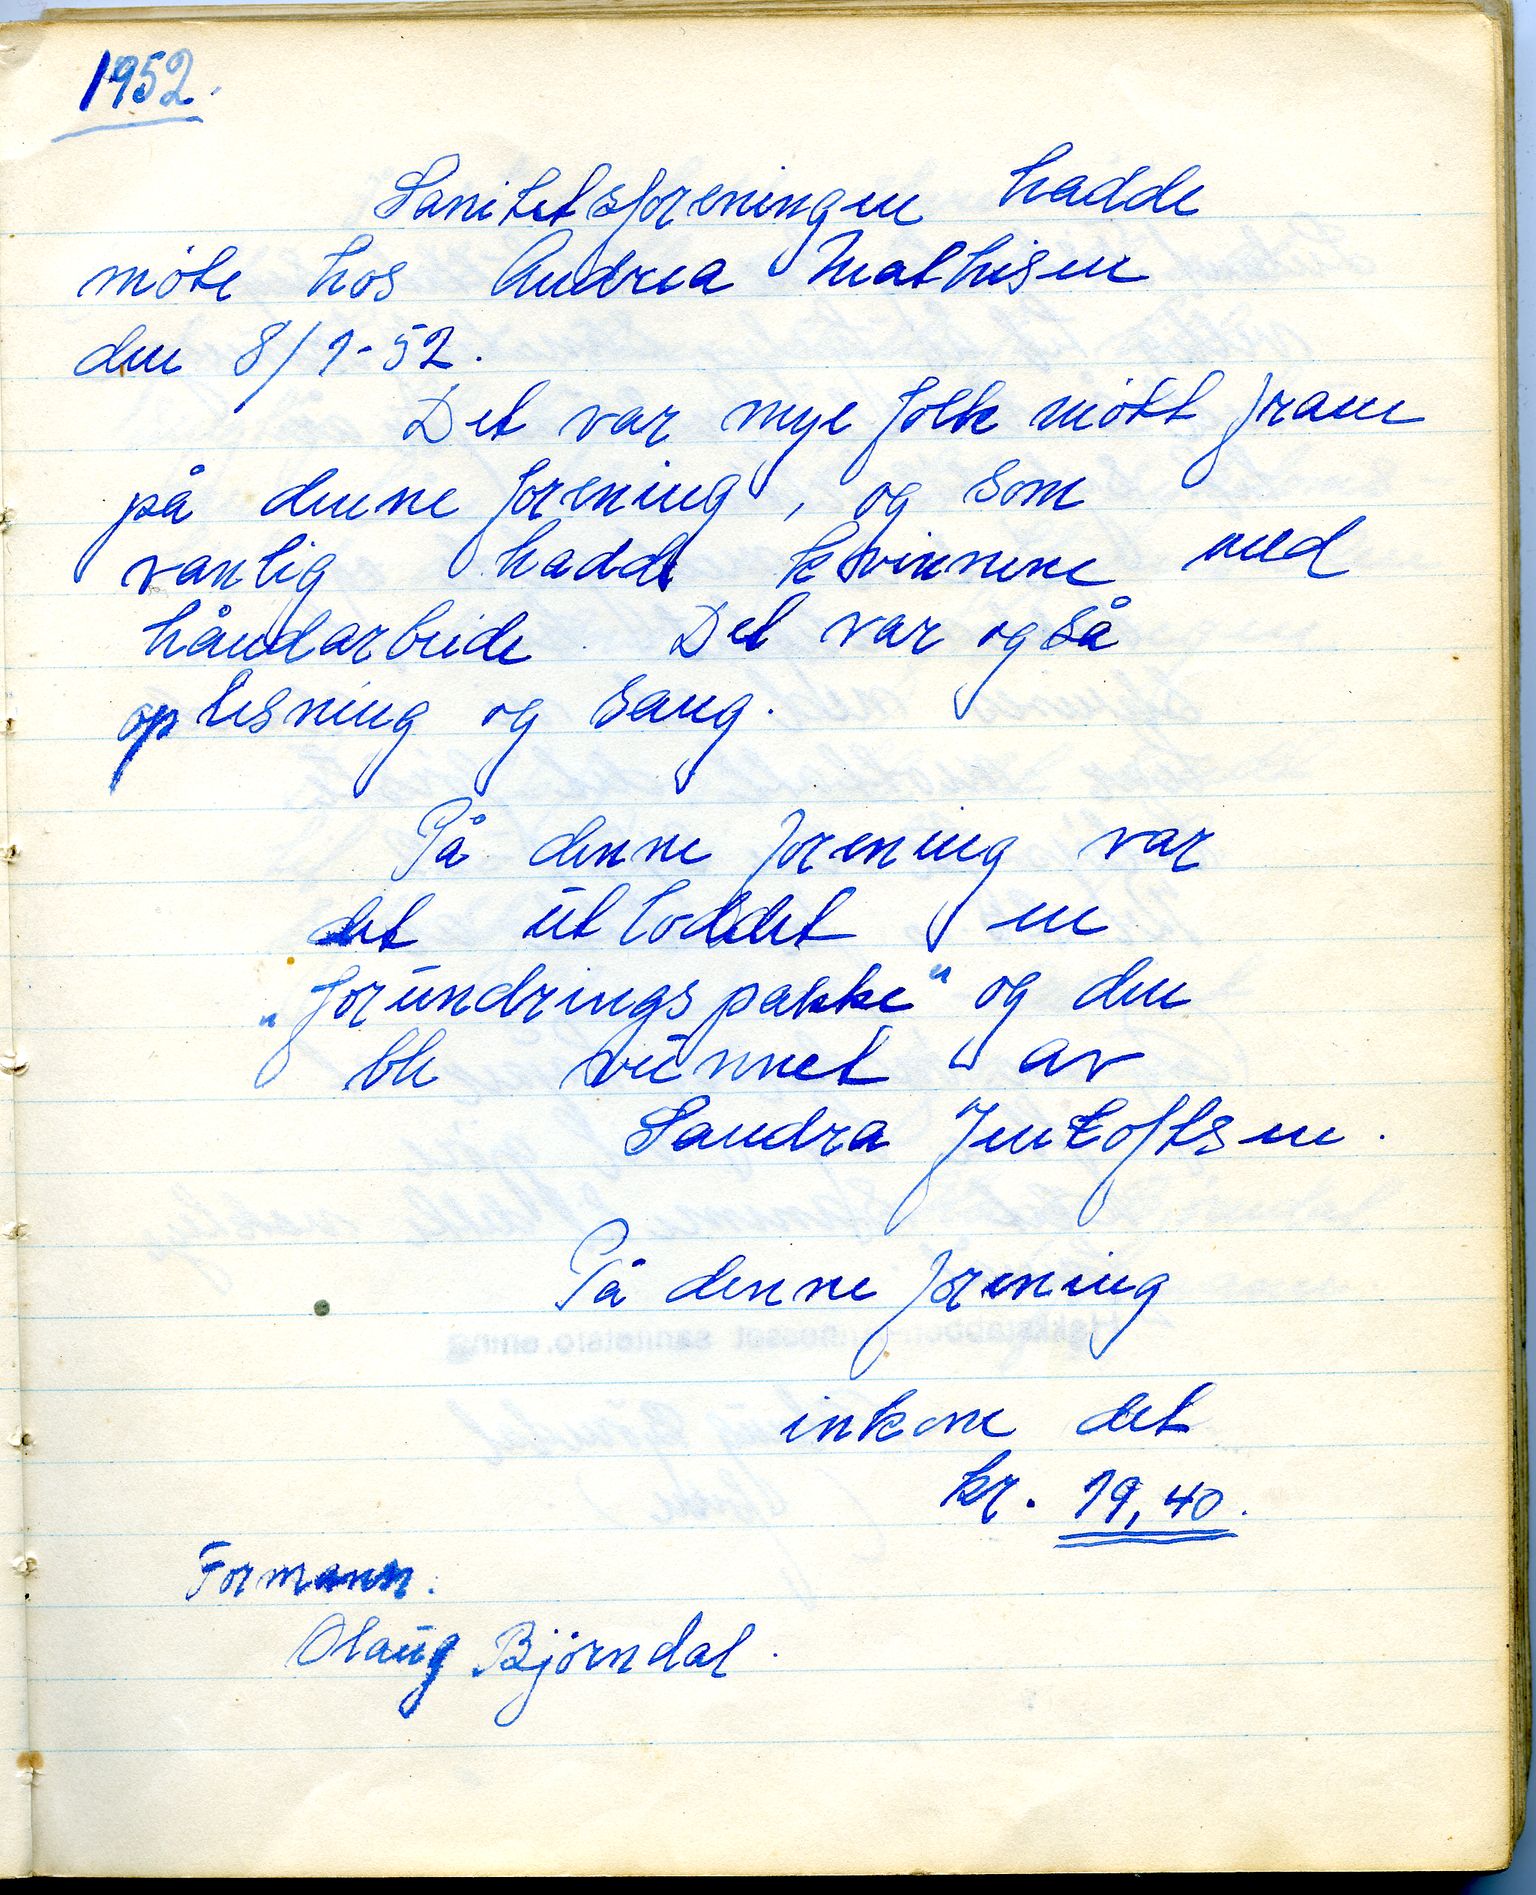 1952.
Sanitetsforeningen hadde
møte hos Andrea Mathisen
den 8/1-52.
Det var mye folk møtt fram
på denne forening, og som
vanlig hadde kvinnene med
håndarbeide. Det var også
oplesning og sang.
På denne forening var
det utloddet en
„forundringspakke" og den
ble vunnet av
Sandra Jentoftsen.
På denne forening
inkom det
kr. 19,40.
Formann:
Olaug Bjørndal.